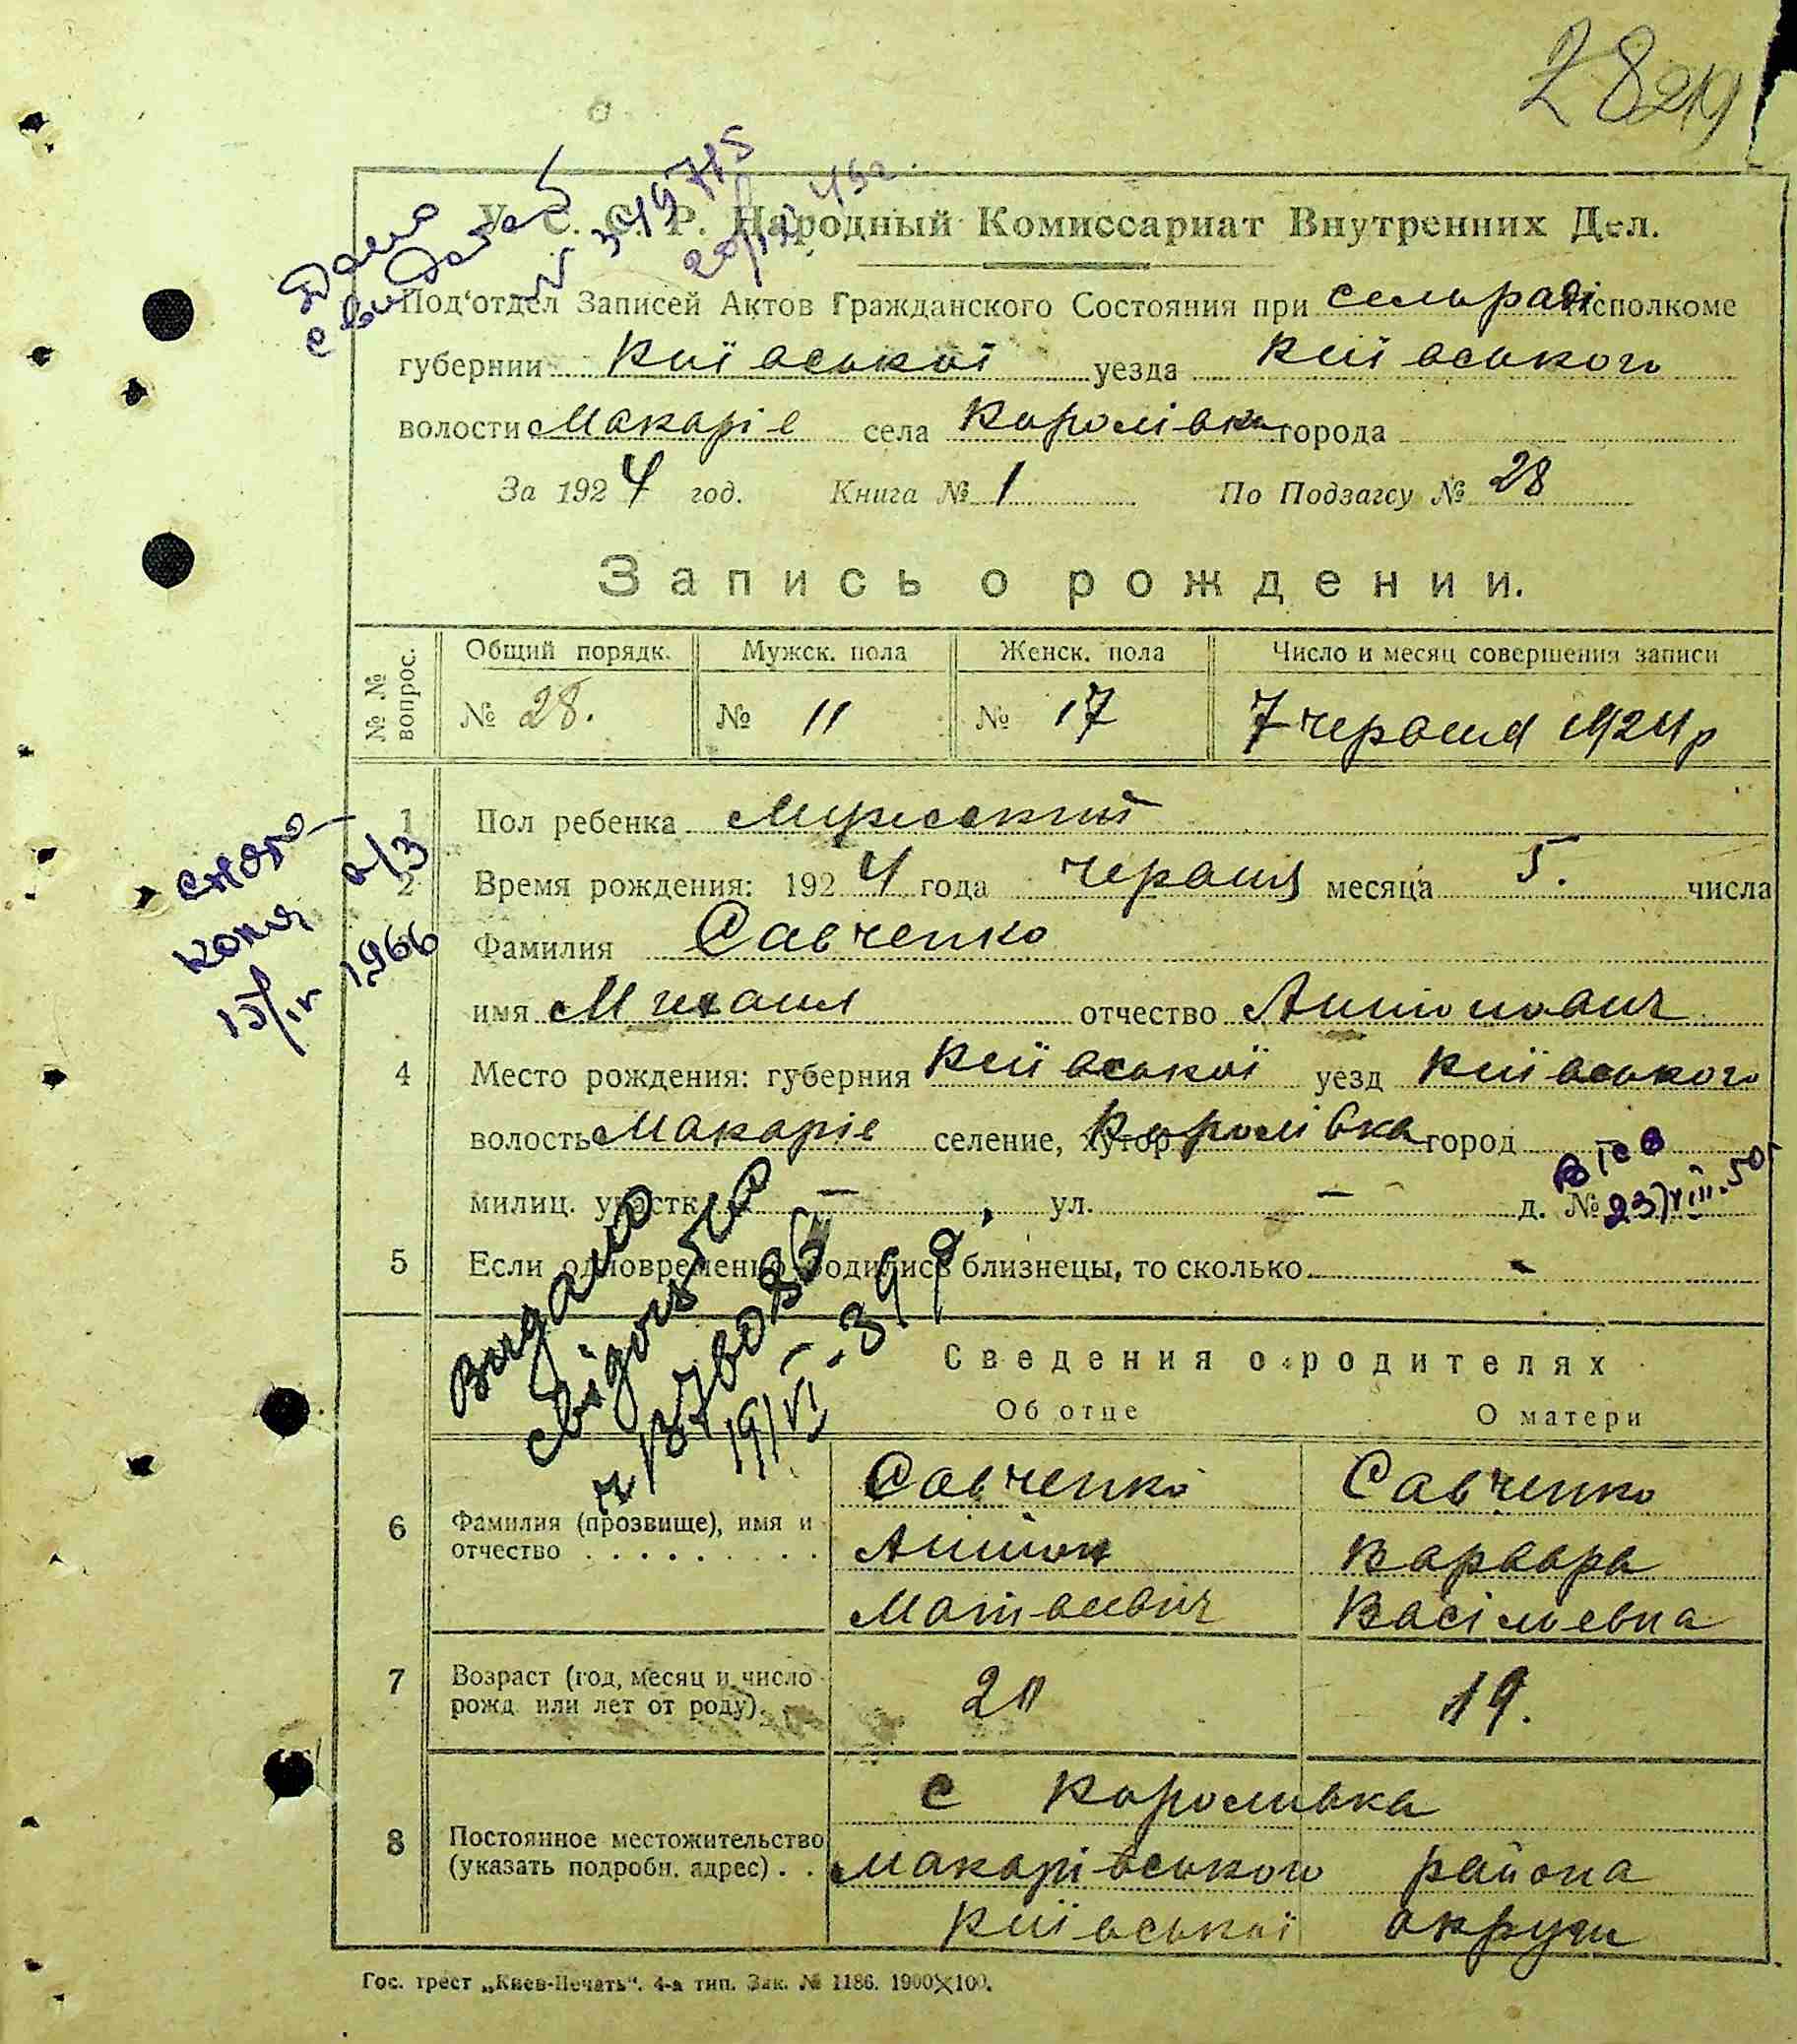 28
У. С. С. Р. Народный Комиссариат Внутренних Дел.
Под‘отдел Записей Актов Гражданского Состояния при сельраді Исполкоме
губернии Київської уезда Київського
волости Макарів села Королівка города
За 1924 год. Книга № 1 По Подзагсу № 28
Запись о рождении.
№ № вопрос.
Общий порядк. Мужск. пола Женск. пола Число и месяц совершения записи
№ 28. № 11 № 17 7 червня 1924 р
1 Пол ребенка Мужеський
2 Время рождения: 1924 года червня месяца 5. числа
Фамилия Савченко
имя Михаил отчество Антонович
снято
копия а/з
15/IV 1966
4 Место рождения: губерния Київської уезд Київського
волость Макарів селение, хутор Королівка город
милиц. участк. — , ул. — д. №
23/VIII.50
5 Если одновременно родились близнецы, то сколько -
Видано
19/VI.-39 р.
Сведения о родителях
Об отце О матери
Савченко Савченко
6 Фамилия (прозвище), имя и Антон Варвара
отчество . . . . . . . . . Матвеевич Васільевна
7 Возраст (год, месяц и число
рожд. или лет от роду). 20 19.
с Королівка
8 Постоянное местожительство
(указать подробн. адрес) . . Макарівського района
Київської округи
Гос. трест „Киев-Печать“. 4-а тип. Зак. № 1186. 1900×100.